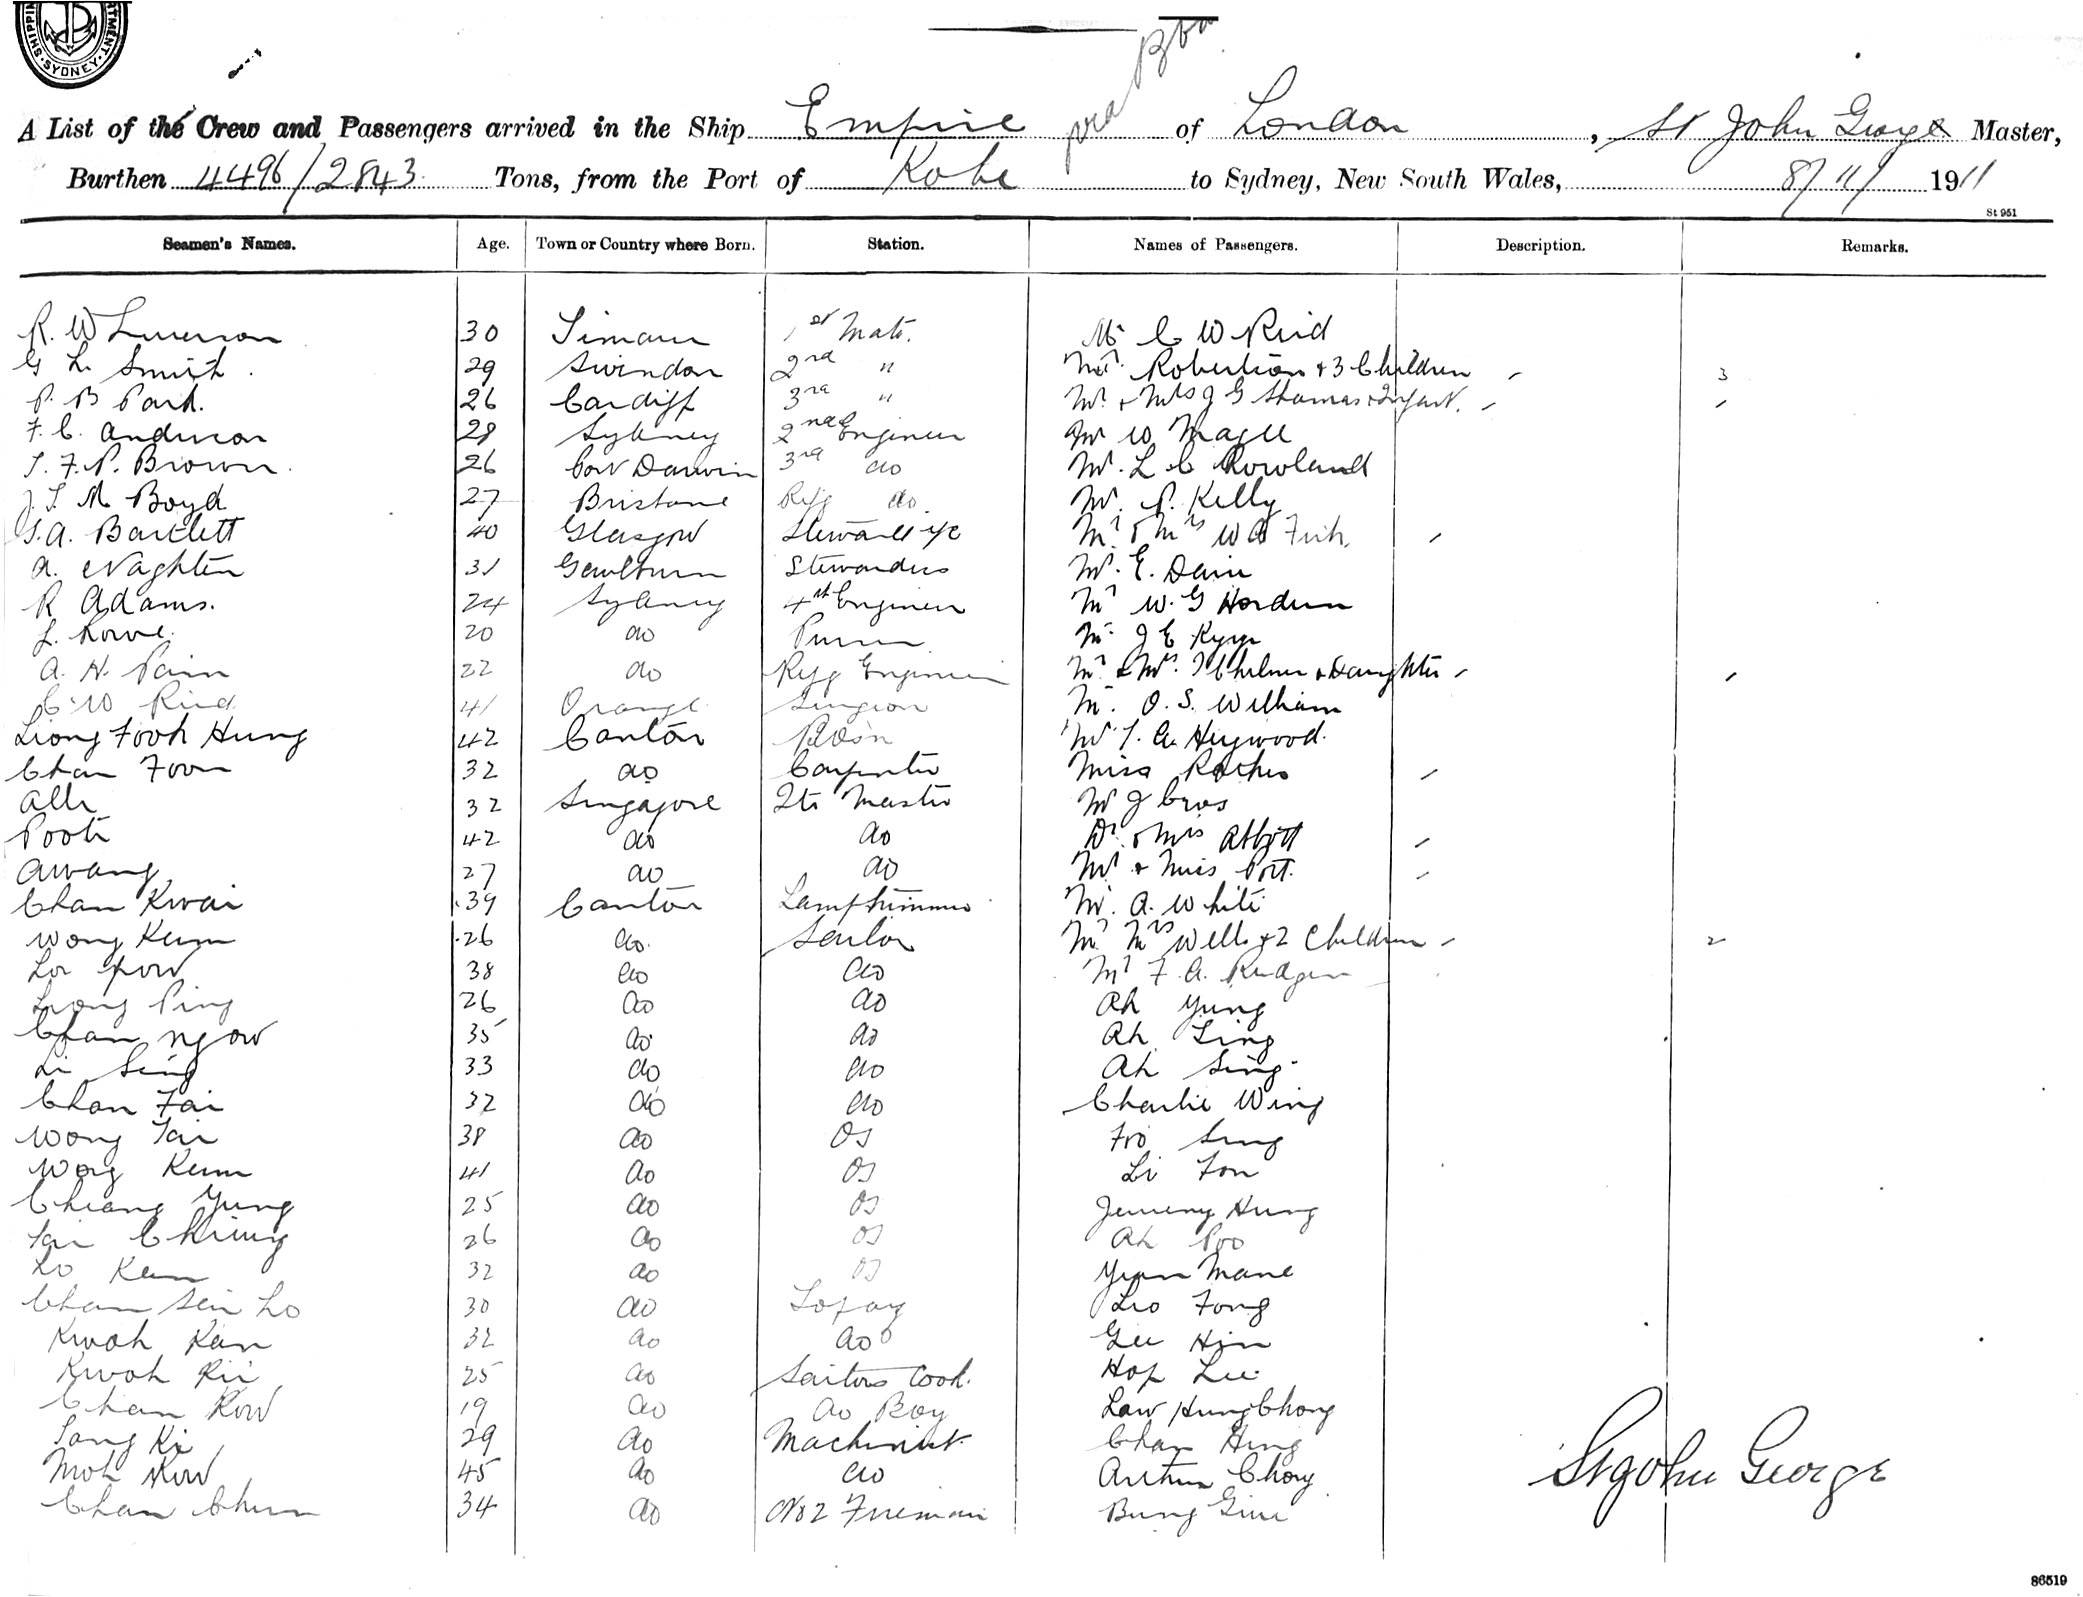 SHIPPING DEPARTMENT SYDNEY
via Bne
A List of the Crew and Passengers arrived in the Ship Empire of London, St John George Master,
Burthen 4496/2843 Tons, from the Port of Kobe to Sydney, New South Wales, 8/11/1911
St 951
Seamen's Names. Age. Town or Country where Born. Station. Names of Passengers. Description. Remarks.
R. W 30 Timaru 1st Mate. Mr C W Reid
G L Smith 29 Swindon 2nd " Mrs Robertson + 3 Children - 3
P. B Park. 26 Cardiff 3rd " Mr + Mrs J G Thomas + Infant. - -
F. C. Anderson 28 Sydney 2nd Engineer Mr W Magee
T. F. P. Brown. 26 Port Darwin 3rd do Mr. L C Rowland
J. T. M Boyd 27 Brisbane Refg do. Mr. P. Kelly
S. A. Bartlett 40 Glasgow Steward i/c Mr & Mrs W -
A. Naghten 31 Goulburn Stewardess Mr. E. Dain
R Adams. 24 Sydney 4th Engineer Mr W. G Hordern
L. Rowe. 20 do Purser Mr J E
A. H. Pain 22 do Refg Engineer Mr & Mrs Chelmer & Daughter - -
C. W Reid 41 Orange Surgeon Mr. O. S. William
Liong Fook Hung 42 Canton Bosn Mr T. A. Heywood.
Chan Foon 32 do Carpenter Miss -
Alli 32 Singapore Qtr Master Mr J
Pooti 42 do do Dr & Mrs Abbott -
Awang 27 do do Mr & Miss Port. -
Chan Kwai 39 Canton Lamptrimmer Mr. A. White
Wong Kum 26 do. Sailor Mr Mrs Wells + 2 Children - 2
Lor pow 38 do do Mr F. A. Rudgen
Leong Ping 26 do do Ah Yung
Chan Ngow 35 do do Ah Ling
Li Sing 33 do do Ah Sing
Chan Fai 32 do do Charlie Wing
Wong Tai 38 do OS Foo Sing
Wong Kum 41 do OS Li Fon
Chiang Yung 25 do OS Jimmy Hung
Tai Cheung 26 do OS Ah Poo
Lo Kan 32 do OS Yuen Mane
Chan Sin Lo 30 do Topay Leo Fong
Kwok Kan 32 do do Gee Hin
Kwok Kii 25 do Sailors Cook. Hop Lee
Chan Kow 19 do do Boy Law Hung Chong
Tong Ki 29 do Machinist Chan Hing
Mok Kow 45 do do Arthur Chong
Chan Chun 34 do No 2 Fireman Bung Gim
St John George
86519